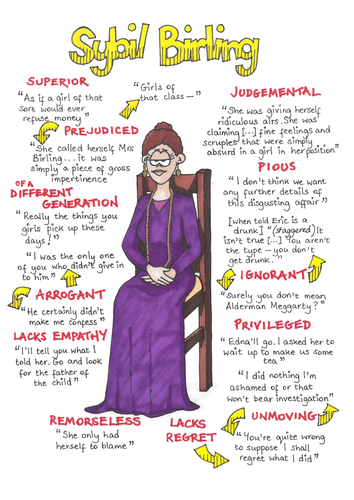 Sybil Birling
SUPERIOR
"As if a girl of that
sort would ever
refuse money"
"Girls of
that class—"
PREJUDICED
"She called herself Mrs
Birling... It was
simply a piece of gross
impertinence
OF A
DIFFERENT
GENERATION
"Really the things you
girls pick up these
days!"
"I was the only one
of you who didn't give in
to him"
ARROGANT
"He certainly didn't
make me confess"
LACKS EMPATHY
"I'll tell you what I
told her. Go and look
for the father of
the child"
REMORSELESS
"She only had
herself to blame"
JUDGEMENTAL
"She was giving herself
ridiculous airs. She was
claiming [...] fine feelings and
scruples that were simply
absurd in a girl in her position"
PIOUS
"I don't think we want
any further details of
this disgusting affair"
[When told Eric is a
drunk] "(staggered) It
isn't true [...] You aren't
the type – you don't
get drunk."
IGNORANT
"Surely you don't mean
Alderman Meggarty?"
PRIVILEGED
"Edna'll go. I asked her to
wait up to make us some
tea"
"I did nothing I'm
ashamed of or that
won't bear investigation"
UNMOVING
LACKS
REGRET
"You're quite wrong
to suppose I shall
regret what I did"